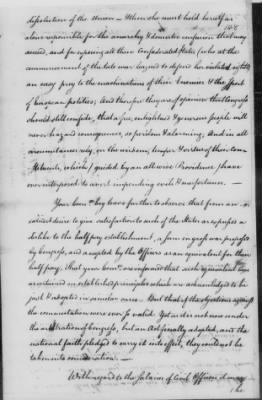 dissolution of the Union – When she must hold herself
alone responsible for the anarchy & domestic confusion that may
succeed, and for exposing all these Confederated States (who at the
commencement of the late war leagued to defend her violated rights)
an easy prey to the machinations of their Enemies & the sport
of European politics; And therefore they are of opinion that Congress
should still confide, that a free, enlightened & generous people will
never hazard consequences, so perilous & alarming, And in all
circumstances, rely on the wisdom, temper & virtue of their con-
stituents, which (guided by an all wise Providence) have
ever interposed to avert impending evils & misfortunes. –
Your Comee. beg leave further to observe that from an
disposition to give satisfaction to such of the States as expressed a
dislike to the half pay establishment, a sum in gross was proposed
by Congress, and accepted by the Officers as an equivalent for their
half pay. That your Comee. are informed that such equivalent was
ascertained on established principles which are acknowledged to be
just & adopted in similar cases. But that if the objections against
the commutation were ever so valid. Yet as it is not now under
the arbitration of Congress, but an Act finally adopted, and the
national faith pledged to carry it into effect, they could not be
taken into consideration. –
With regard to the Salaries of Civil Officers it may
be